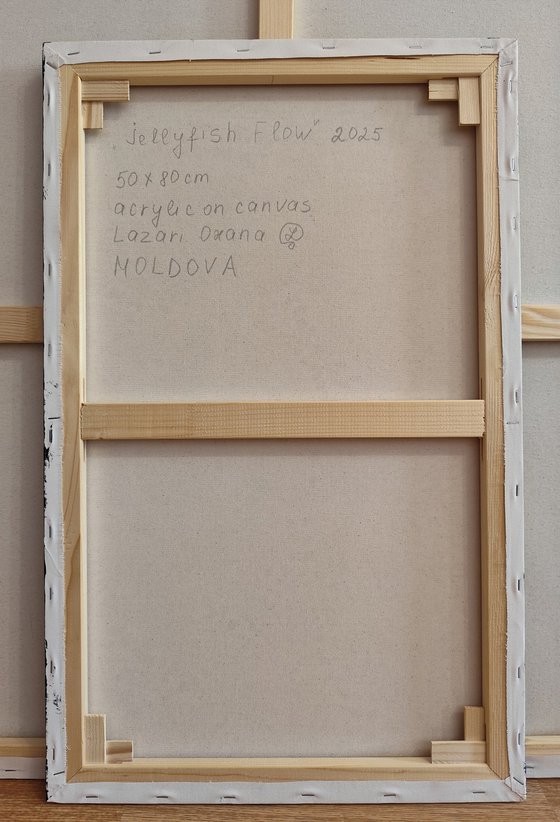 "Jellyfish Flow" 2025
50 x 80 cm
acrylic on canvas
Lazari Oxana
MOLDOVA